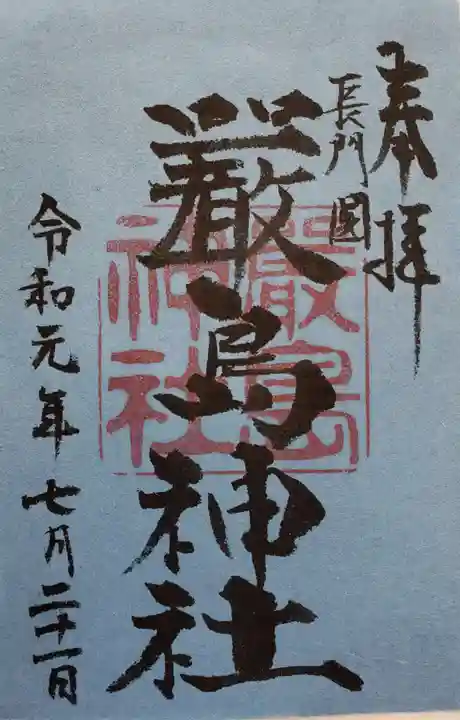 奉拝
長門國
厳島神社
嚴島
神社
令和元年七月二十一日